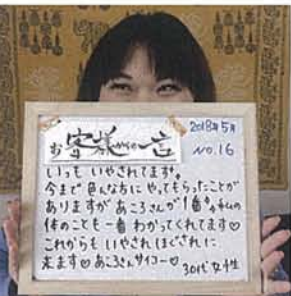 お客様からの一言
2018年5月
NO.16
いつも いやされてます。
今まで 色んな方に やってもらったことが
ありますが あころさんが1番♂私の
体のことも一番 わかってくれてます♡
これからも いやされ ほぐされに
来ます♡ あころさんサイコー♡
30代 女性